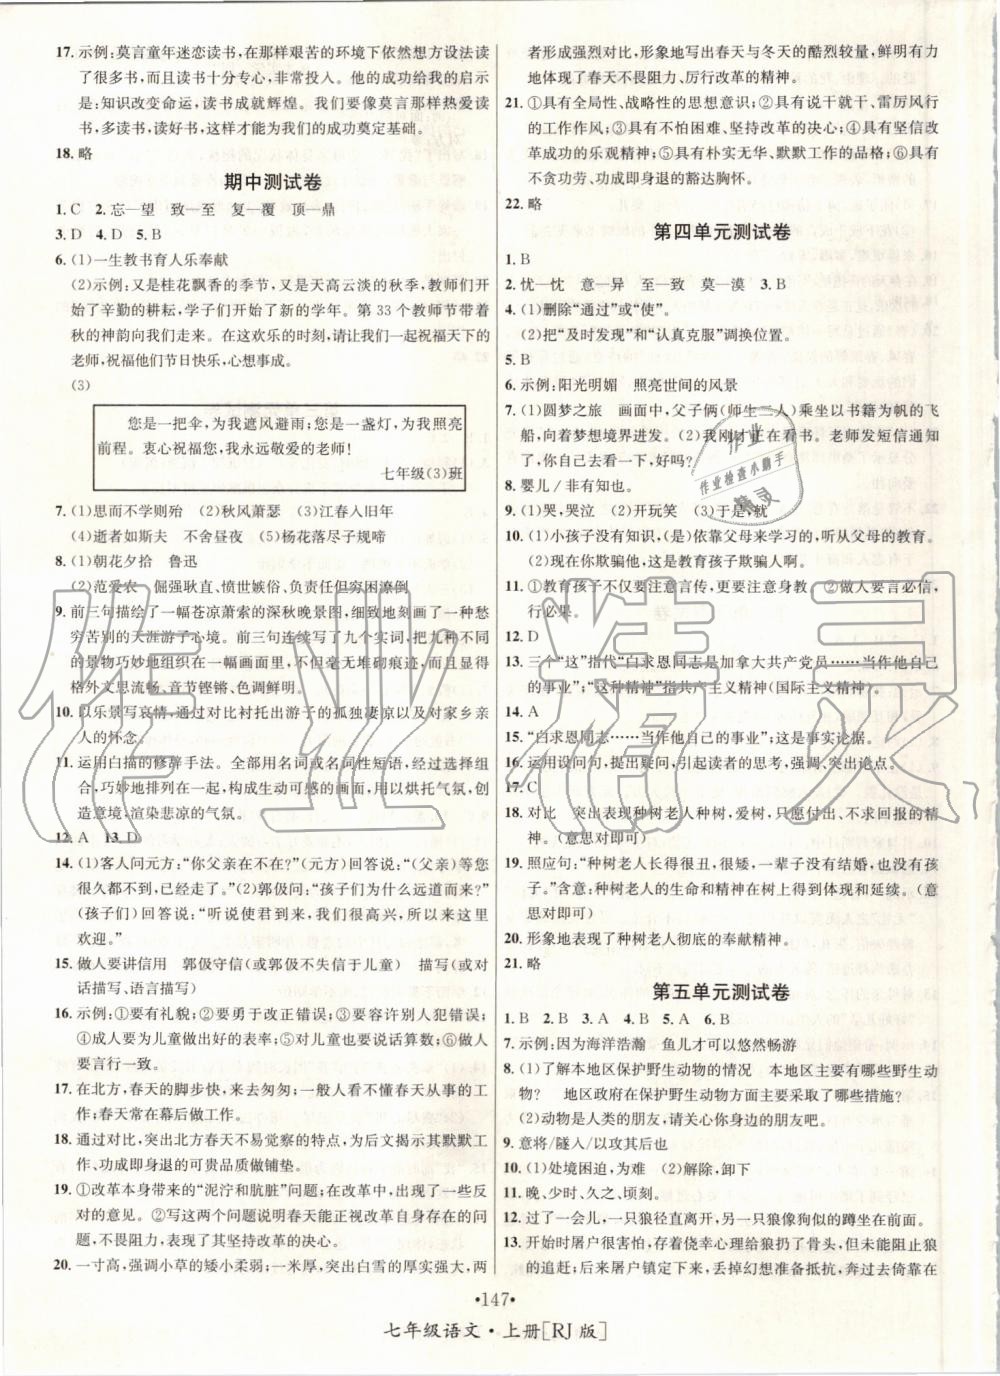 17. 示例:莫言童年迷恋读书,在那样艰苦的环境下依然想方设法读
了很多书,而且读书十分专心,非常投入。他的成功给我的启
示是:知识改变命运,读书成就辉煌。我们要像莫言那样热爱读
书,多读书,读好书,这样才能为我们的成功奠定基础。
18. 略
期中测试卷
1. C 2. 忘—望 致—至 复—覆 顶—鼎
3. D 4. D 5. B
6. (1)一生教书育人乐奉献
(2)示例:又是桂花飘香的季节,又是天高云淡的秋季,教师们开
始了辛勤的耕耘,学子们开始了新的学年。第 33 个教师节带着
秋的神韵向我们走来。在这欢乐的时刻,请让我们一起祝福天下的
老师,祝福他们节日快乐,心想事成。
(3)
您是一把伞,为我遮风避雨;您是一盏灯,为我照亮
前程。衷心祝福您,我永远敬爱的老师!
七年级(3)班
7. (1)思而不学则殆 (2)秋风萧瑟 (3)江春入旧年
(4)逝者如斯夫 不舍昼夜 (5)杨花落尽子规啼
8. (1)朝花夕拾 鲁迅
(2)范爱农 倔强耿直、愤世嫉俗、负责任但穷困潦倒
9. 前三句描绘了一幅苍凉萧索的深秋晚景图,细致地刻画了一种愁
穷苦别的天涯游子心境。前三句连续写了九个实词,把九种不同
的景物巧妙地组织在一幅画面里,不但毫无堆砌痕迹,而且显得
格外文思流畅、音节铿锵、色调鲜明。
10. 以乐景写哀情,通过对比衬托出游子的孤独凄凉以及对家乡亲
人的怀念。
11. 运用白描的修辞手法。全部用名词或名词性短语,通过选择组
合,巧妙地排列在一起,构成生动可感的画面,用以烘托气氛,创
造意境,渲染悲凉的气氛。
12. A 13. D
14. (1)客人问元方:“你父亲在不在?”(元方)回答说:“(父亲)等您
很久都不到,已经走了。”(2)郭伋问:“孩子们为什么远道而来?”
(孩子们)回答说:“听说使君到来,我们很高兴,所以来这里
欢迎。”
15. 做人要讲信用 郭伋守信(或郭伋不失信于儿童) 描写(或对
话描写、语言描写)
16. 示例:①要有礼貌;②要勇于改正错误;③要容许别人犯错误;
④成人要为儿童做出好的表率;⑤对儿童也要说话算数;⑥做人
要言行一致。
17. 在北方,春天的脚步快,来去匆匆;一般人看不懂春天从事的工
作;春天常在幕后做工作。
18. 通过对比,突出北方春天不易觉察的特点,为后文揭示其默默工
作、功成即身退的可贵品质做铺垫。
19. ①改革本身带来的“泥泞和肮脏”问题;在改革中,出现了一些反
对的意见。②写这两个问题说明春天能正视改革自身存在的问
题,不畏阻力,表现了其坚持改革的决心。
20. 一寸高,强调小草的矮小柔弱;一米厚,突出白雪的厚实强大,两
者形成强烈对比,形象地写出春天与冬天的酷烈较量,鲜明有力
地体现了春天不畏阻力、厉行改革的精神。
21. ①具有全局性、战略性的思想意识;②具有说干就干、雷厉风行
的工作作风;③具有不怕困难、坚持改革的决心;④具有坚信改
革成功的乐观精神;⑤具有朴实无华、默默工作的品格;⑥具有
不贪功劳、功成即身退的豁达胸怀。
22. 略
第四单元测试卷
1. B
2. 忧—忱 意—异 至—致 莫—漠 3. B
4. (1)删除“通过”或“使”。
(2)把“及时发现”和“认真克服”调换位置。
5. B
6. 示例:阳光明媚 照亮世间的风景
7. (1)圆梦之旅 画面中,父子俩(师生二人)乘坐以书籍为帆的飞
船,向着梦想境界进发。(2)我刚才正在看书。老师发短信通知
了,你自己去看一下,好吗?
8. 婴儿 / 非有知也。
9. (1)哭,哭泣 (2)开玩笑 (3)于是,就
10. (1)小孩子没有知识,(是)依靠父母来学习的,听从父母的教育。
(2)现在你欺骗他,这是教育孩子欺骗人啊。
11. ①教育孩子不仅要注意言传,更要注意身教。②做人要言必信,
行必果。
12. D
13. 三个“这”指代“白求恩同志是加拿大共产党员……当作他自己
的事业”;“这种精神”指共产主义精神(国际主义精神)。
14. A
15. “白求恩同志……当作他自己的事业”;这是事实论据。
16. 运用设问句,提出疑问,引起读者的思考,强调、突出论点。
17. C
18. 对比 突出表现种树老人种树,爱树,只愿付出,不求回报的精
神。(意思对即可)
19. 照应句:“种树老人长得很丑,很矮,一辈子没有结婚,也没有孩
子。”含意:种树老人的生命和精神在树上得到体现和延续。(意
思对即可)
20. 形象地表现了种树老人彻底的奉献精神。
21. 略
第五单元测试卷
1. B 2. B 3. A 4. B 5. A 6. B
7. 示例:因为海洋浩瀚 鱼儿才可以悠然畅游
8. (1)了解本地区保护野生动物的情况 本地区主要有哪些野生动
物? 地区政府在保护野生动物方面主要采取了哪些措施?
(2)动物是人类的朋友,请关心你身边的动物朋友吧。
9. 意将/隧入/以攻其后也
10. (1)处境困迫,为难 (2)解除,卸下
11. 晚、少时、久之、顷刻。
12. 过了一会儿,一只狼径直离开,另一只狼像狗似的蹲坐在前面。
13. 开始时屠户很害怕,存着侥幸心理给狼扔了骨头,但未能阻止狼
的追赶;后来屠户镇定下来,丢掉幻想准备抵抗,奔过去倚靠在
•147•
七年级语文·上册[RJ版]
作业
作业检查小助手
精灵
作业精灵